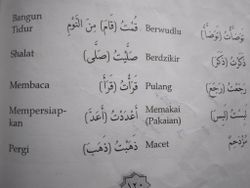 Bangun Tidur قُمْتُ (قَامَ) مِنَ النَّوْمِ Berwudlu تَوَضَّأْتُ (تَوَضَّأَ)
Shalat صَلَّيْتُ (صَلَّى) Berdzikir ذَكَرْتُ (ذَكَرَ)
Membaca قَرَأْتُ (قَرَأَ) Pulang رَجَعْتُ (رَجَعَ)
Mempersiap-kan أَعْدَدْتُ (أَعَدَّ) Memakai (Pakaian) لَبِسْتُ (لَبِسَ)
Pergi ذَهَبْتُ (ذَهَبَ) Macet مُزْدَحِمٌ
١٢٠